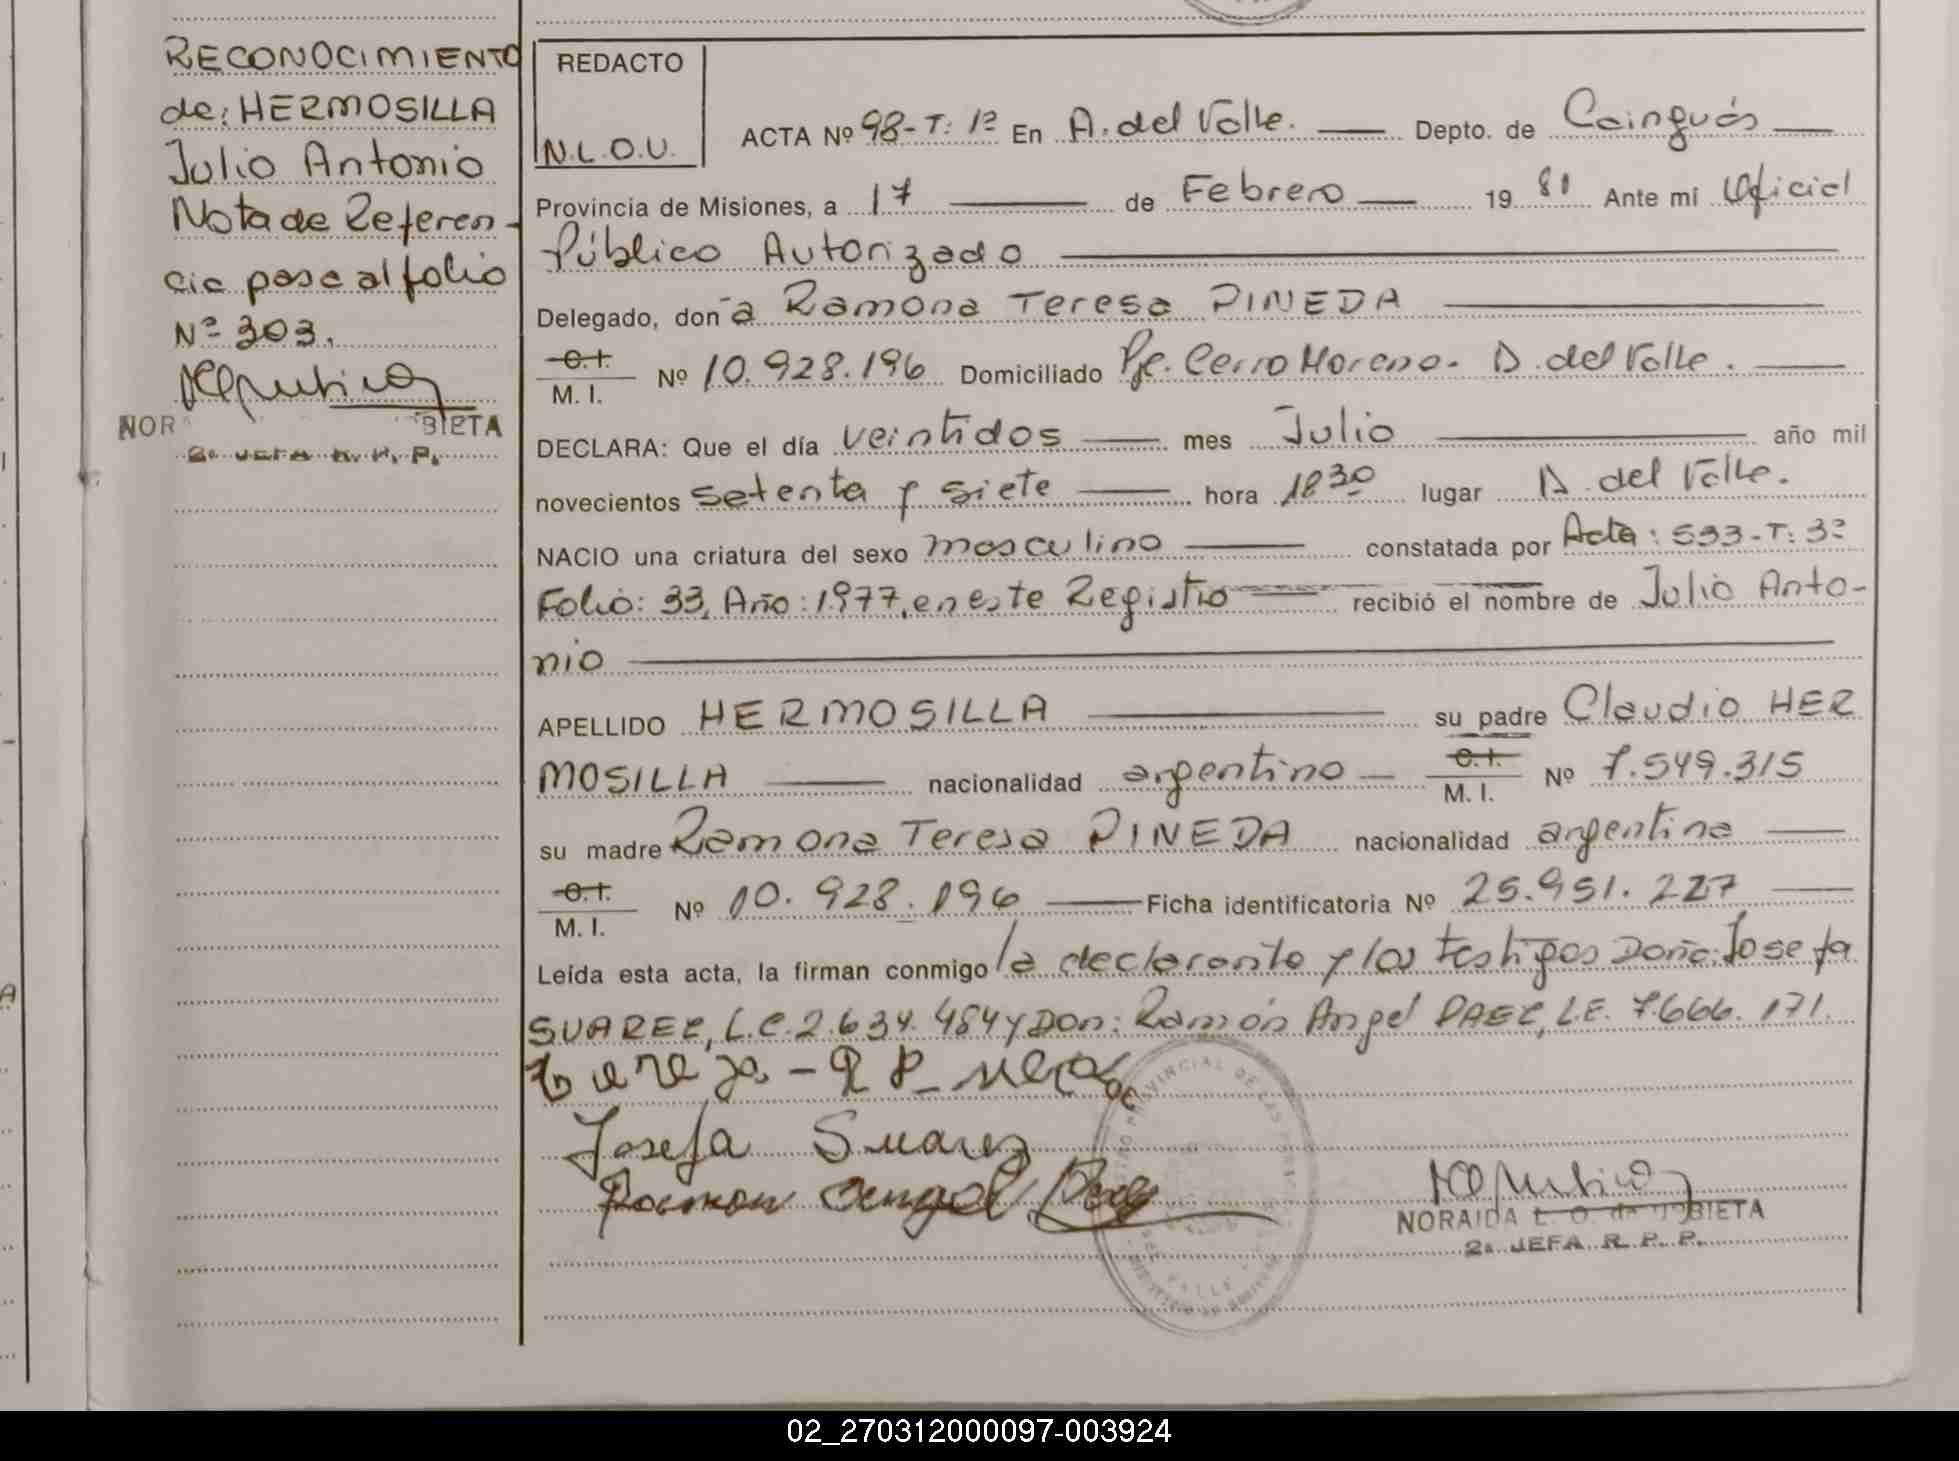 RECONOCIMIENTO
de: HERMOSILLA
Julio Antonio
Nota de Referen-
cia pase al folio
Nº 303.
NOR BIETA
2a JEFA R. P. P.
REDACTO
N.L.O.U.
ACTA Nº 98-T: 1º En A. del Valle. Depto. de Cainguás
Provincia de Misiones, a 17 de Febrero 19 81 Ante mi Oficial
Público Autorizado
Delegado, don a Ramona Teresa PINEDA
C.I.
M. I. Nº 10.928.196 Domiciliado Pje. Cerro Moreno. A. del Valle.
DECLARA: Que el día veintidos mes Julio año mil
novecientos setenta y siete hora 18 30 lugar A. del Valle.
NACIO una criatura del sexo masculino constatada por Acta: 533-T: 3º
Folio: 33, Año: 1977, en este Registro recibió el nombre de Julio Anto-
nio
APELLIDO HERMOSILLA su padre Claudio HER
MOSILLA nacionalidad argentino C.I. M. I. Nº 7.549.315
su madre Ramona Teresa PINEDA nacionalidad argentina
C.I.
M. I. Nº 10.928.196 Ficha identificatoria Nº 25.951.227
Leída esta acta, la firman conmigo la declarante y los testigos Doña: Josefa
SUAREZ, L.C. 2.634.484 y Don: Ramón Angel PAEZ, L.E. 7.666.171.
Josefa Suarez
Ramon Angel Paez
NORAIDA L. O. de BIETA
2a JEFA R. P. P.
02_270312000097-003924